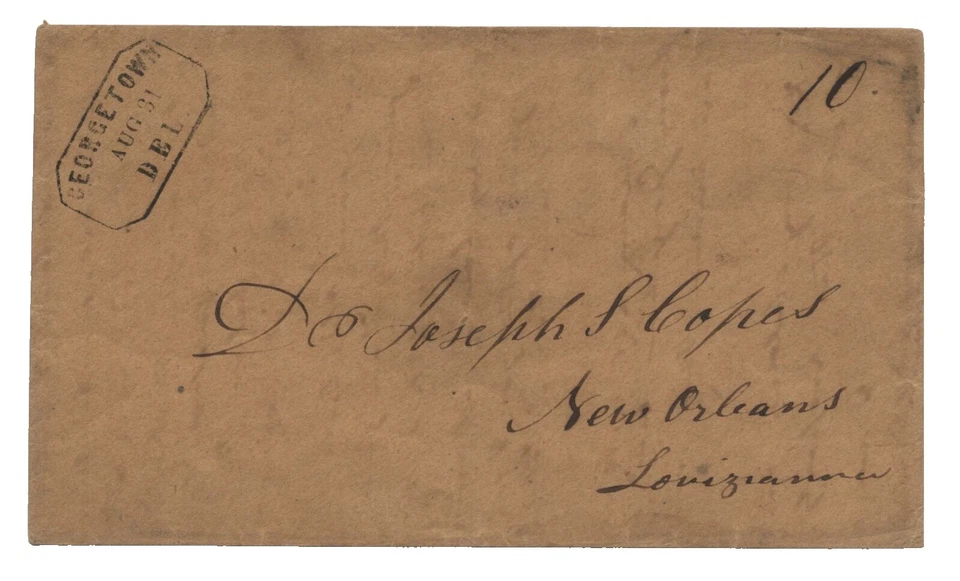 GEORGETOWN
AUG 31
DEL.
10.
Dr Joseph S Copes
New Orleans
Louizianna